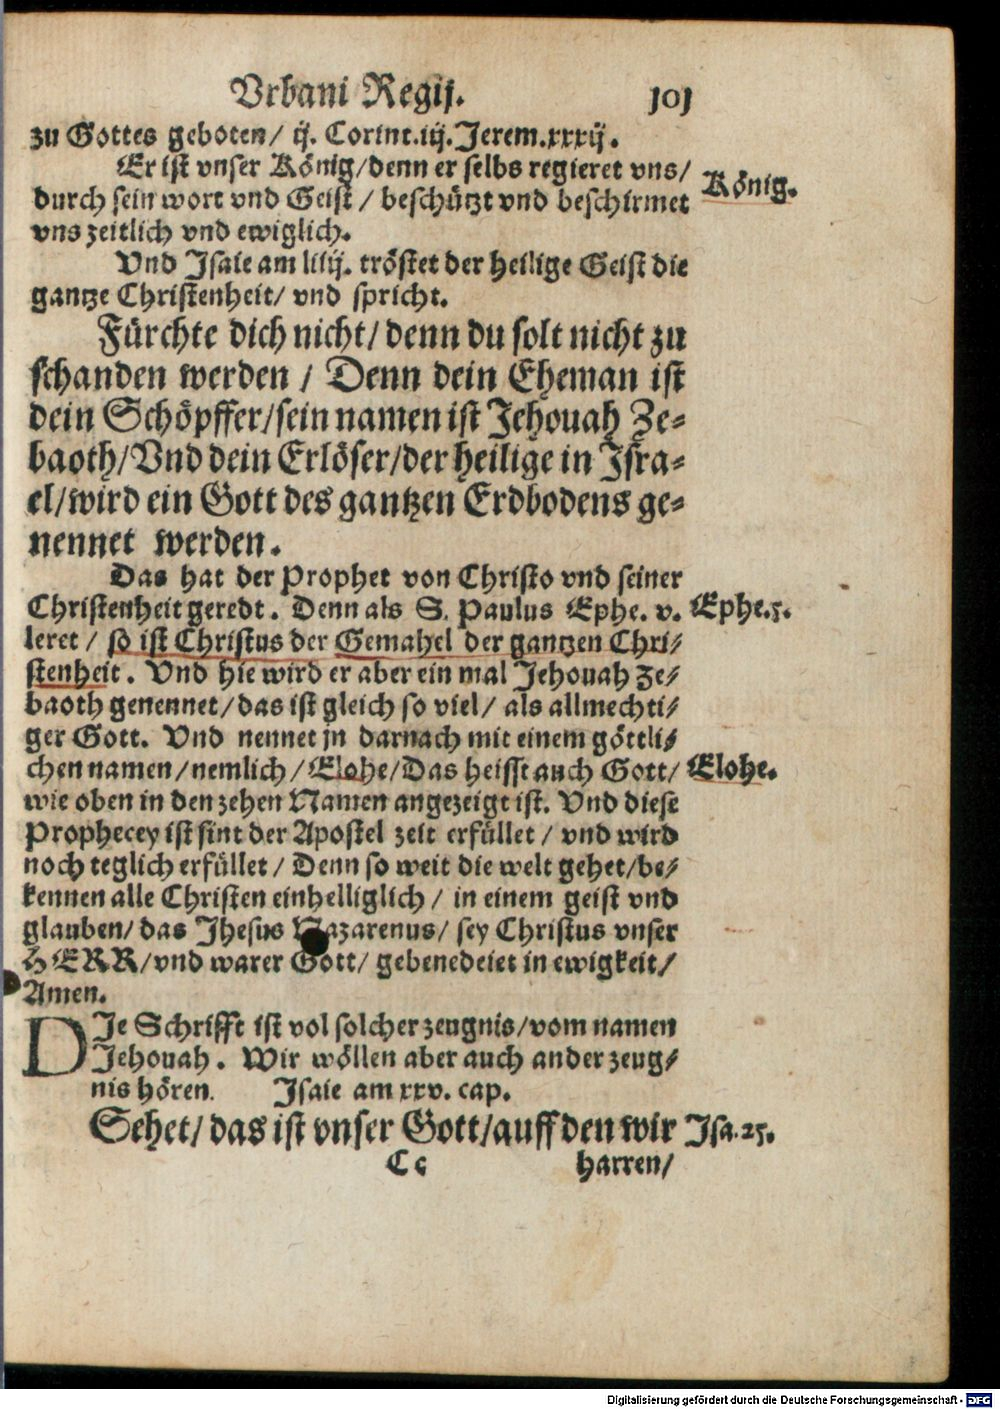 Vrbani Regij. 101
zu Gottes geboten/ ij. Corint.iij.Jerem.xxxij.
Er ist vnser König/denn er selbs regieret vns/
König.
durch sein wort vnd Geist / beschützt vnd beschirmet
vns zeitlich vnd ewiglich.
Vnd Isaie am liiij. tröstet der heilige Geist die
gantze Christenheit/ vnd spricht.
Fürchte dich nicht/denn du solt nicht zu
schanden werden / Denn dein Eheman ist
dein Schöpffer/sein namen ist Jehouah Ze-
baoth/Vnd dein Erlöser/der heilige in Isra-
el/wird ein Gott des gantzen Erdbodens ge-
nennet werden.
Das hat der Prophet von Christo vnd seiner
Christenheit geredt. Denn als S. Paulus Ephe. v.
Ephe.5.
leret / so ist Christus der Gemahel der gantzen Chri/
stenheit. Vnd hie wird er aber ein mal Jehouah Ze/
baoth genennet/das ist gleich so viel/ als allmechti/
ger Gott. Vnd nennet jn darnach mit einem göttli/
chen namen/nemlich/Elohe/Das heisst auch Gott/
Elohe.
wie oben in den zehen Namen angezeigt ist. Vnd diese
Prophecey ist sint der Apostel zeit erfüllet / vnd wird
noch teglich erfüllet / Denn so weit die welt gehet/be/
kennen alle Christen einhelliglich / in einem geist vnd
glauben/ das Jhesus Nazarenus/ sey Christus vnser
HERR/vnd warer Gott/ gebenedeiet in ewigkeit/
Amen.
DIe Schrifft ist vol solcher zeugnis/vom namen
Jehouah. Wir wöllen aber auch ander zeug/
nis hören. Isaie am xxv. cap.
Sehet/das ist vnser Gott/auff den wir
Isa.25.
Cc harren/
Digitalisierung gefördert durch die Deutsche Forschungsgemeinschaft - DFG